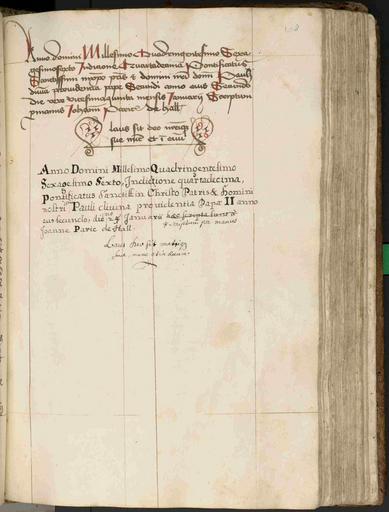 Anno domini Millesimo Quadringentesimo Sexa
gesimosexto Indicione Quartadecima Pontificatus
Sanctissimi in xpo pris et domini nri domini Pauli
divina providencia pape Secundi anno eius Secundo
die vero vicesimaquinta mensis Januarij Scriptum
p manus Johannis Parie de hall
laus sit deo
Anno Domini Millesimo Quadringentesimo
Sexagesimo Sexto, Indictione quartadecima,
Pontificatus Sanctissimi Christo Patris & Domini
nostri Pauli divina providentia Papæ II anno
eius secundo, die 25 Januarij hæc scripta sunt
scriptum per manus
Joanne Parie de Hall.
Laus Deo sit